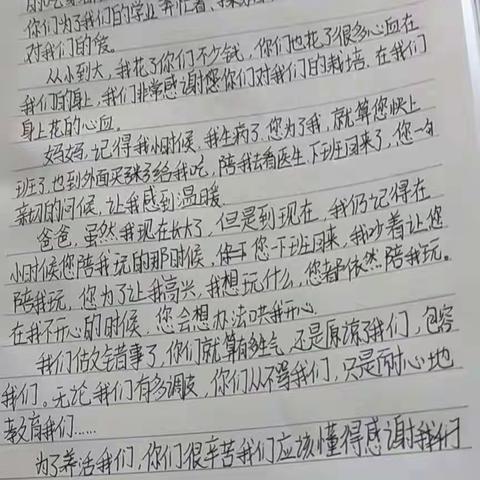 你们为了我们的学业,奔忙着、
对我们的爱。
从小到大,我花了你们不少钱,你们也花了很多心血在
我们的身上,我们非常感谢您你们对我们的栽培,在我们
身上花的心血。
妈妈,记得我小时候,我生病了,您为了我,就算您快上
班了,也到外面买粥给我吃,陪我去看医生,下班回来了,您一句
亲切的问候,让我感到温暖。
爸爸,虽然我现在长大了,但是到现在,我仍记得在
小时候您陪我玩的那时候,您一下班回来,我吵着让您
陪我玩,您为了让我高兴,我想玩什么,您都依然陪我玩。
在我不开心的时候,您会想办法哄我开心。
我们做错事了,你们就算有多生气,还是原谅了我们,包容
我们。无论我们有多调皮,你们从不骂我们,只是耐心地
教育我们……
为了养活我们,你们很辛苦我们应该懂得感谢我们